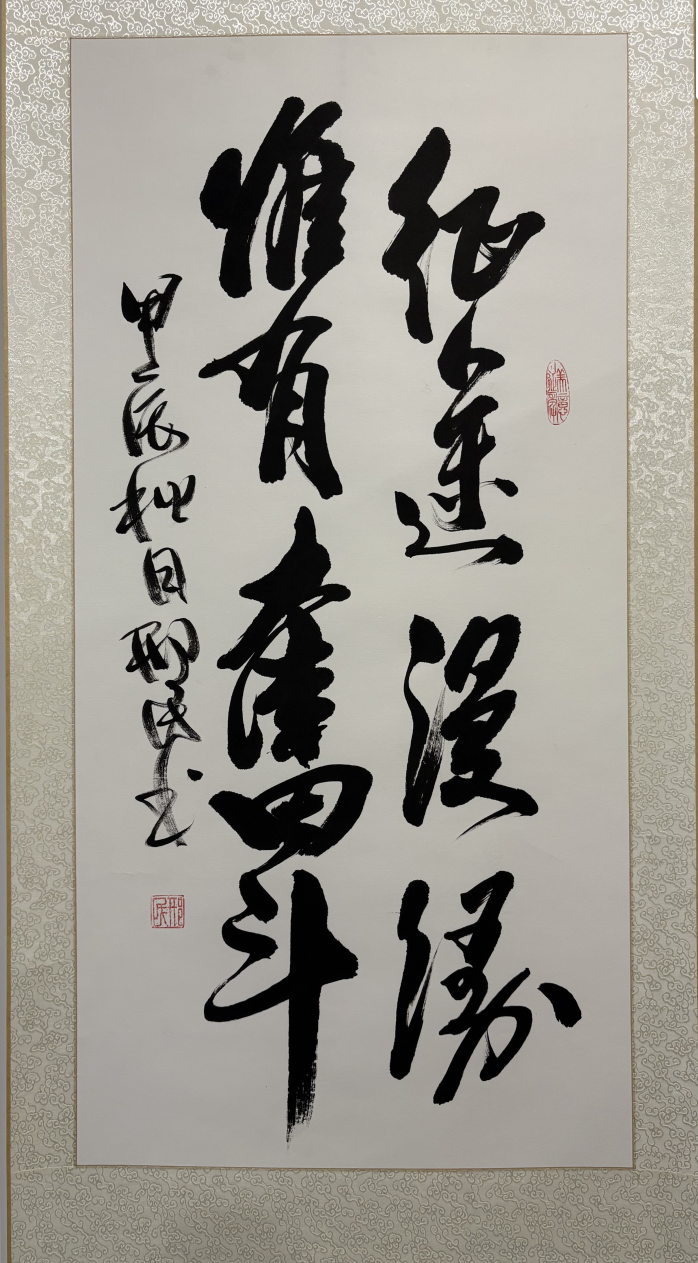 征途漫漫
惟有奮斗
甲辰秋日邢民书
邢民